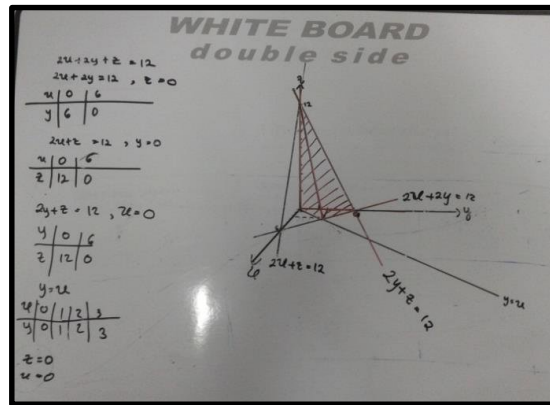 WHITE BOARD
double side
2x+2y+z=12
2x+2y=12 , z=0
x 0 6
y 6 0
2x+z=12 , y=0
x 0 6
z 12 0
2y+z=12 , x=0
y 0 6
z 12 0
y=x
x 0 1 2 3
y 0 1 2 3
z=0
x=0
z
12
2x+2y=12
y
6
x
2x+z=12
2y+z=12
y=x